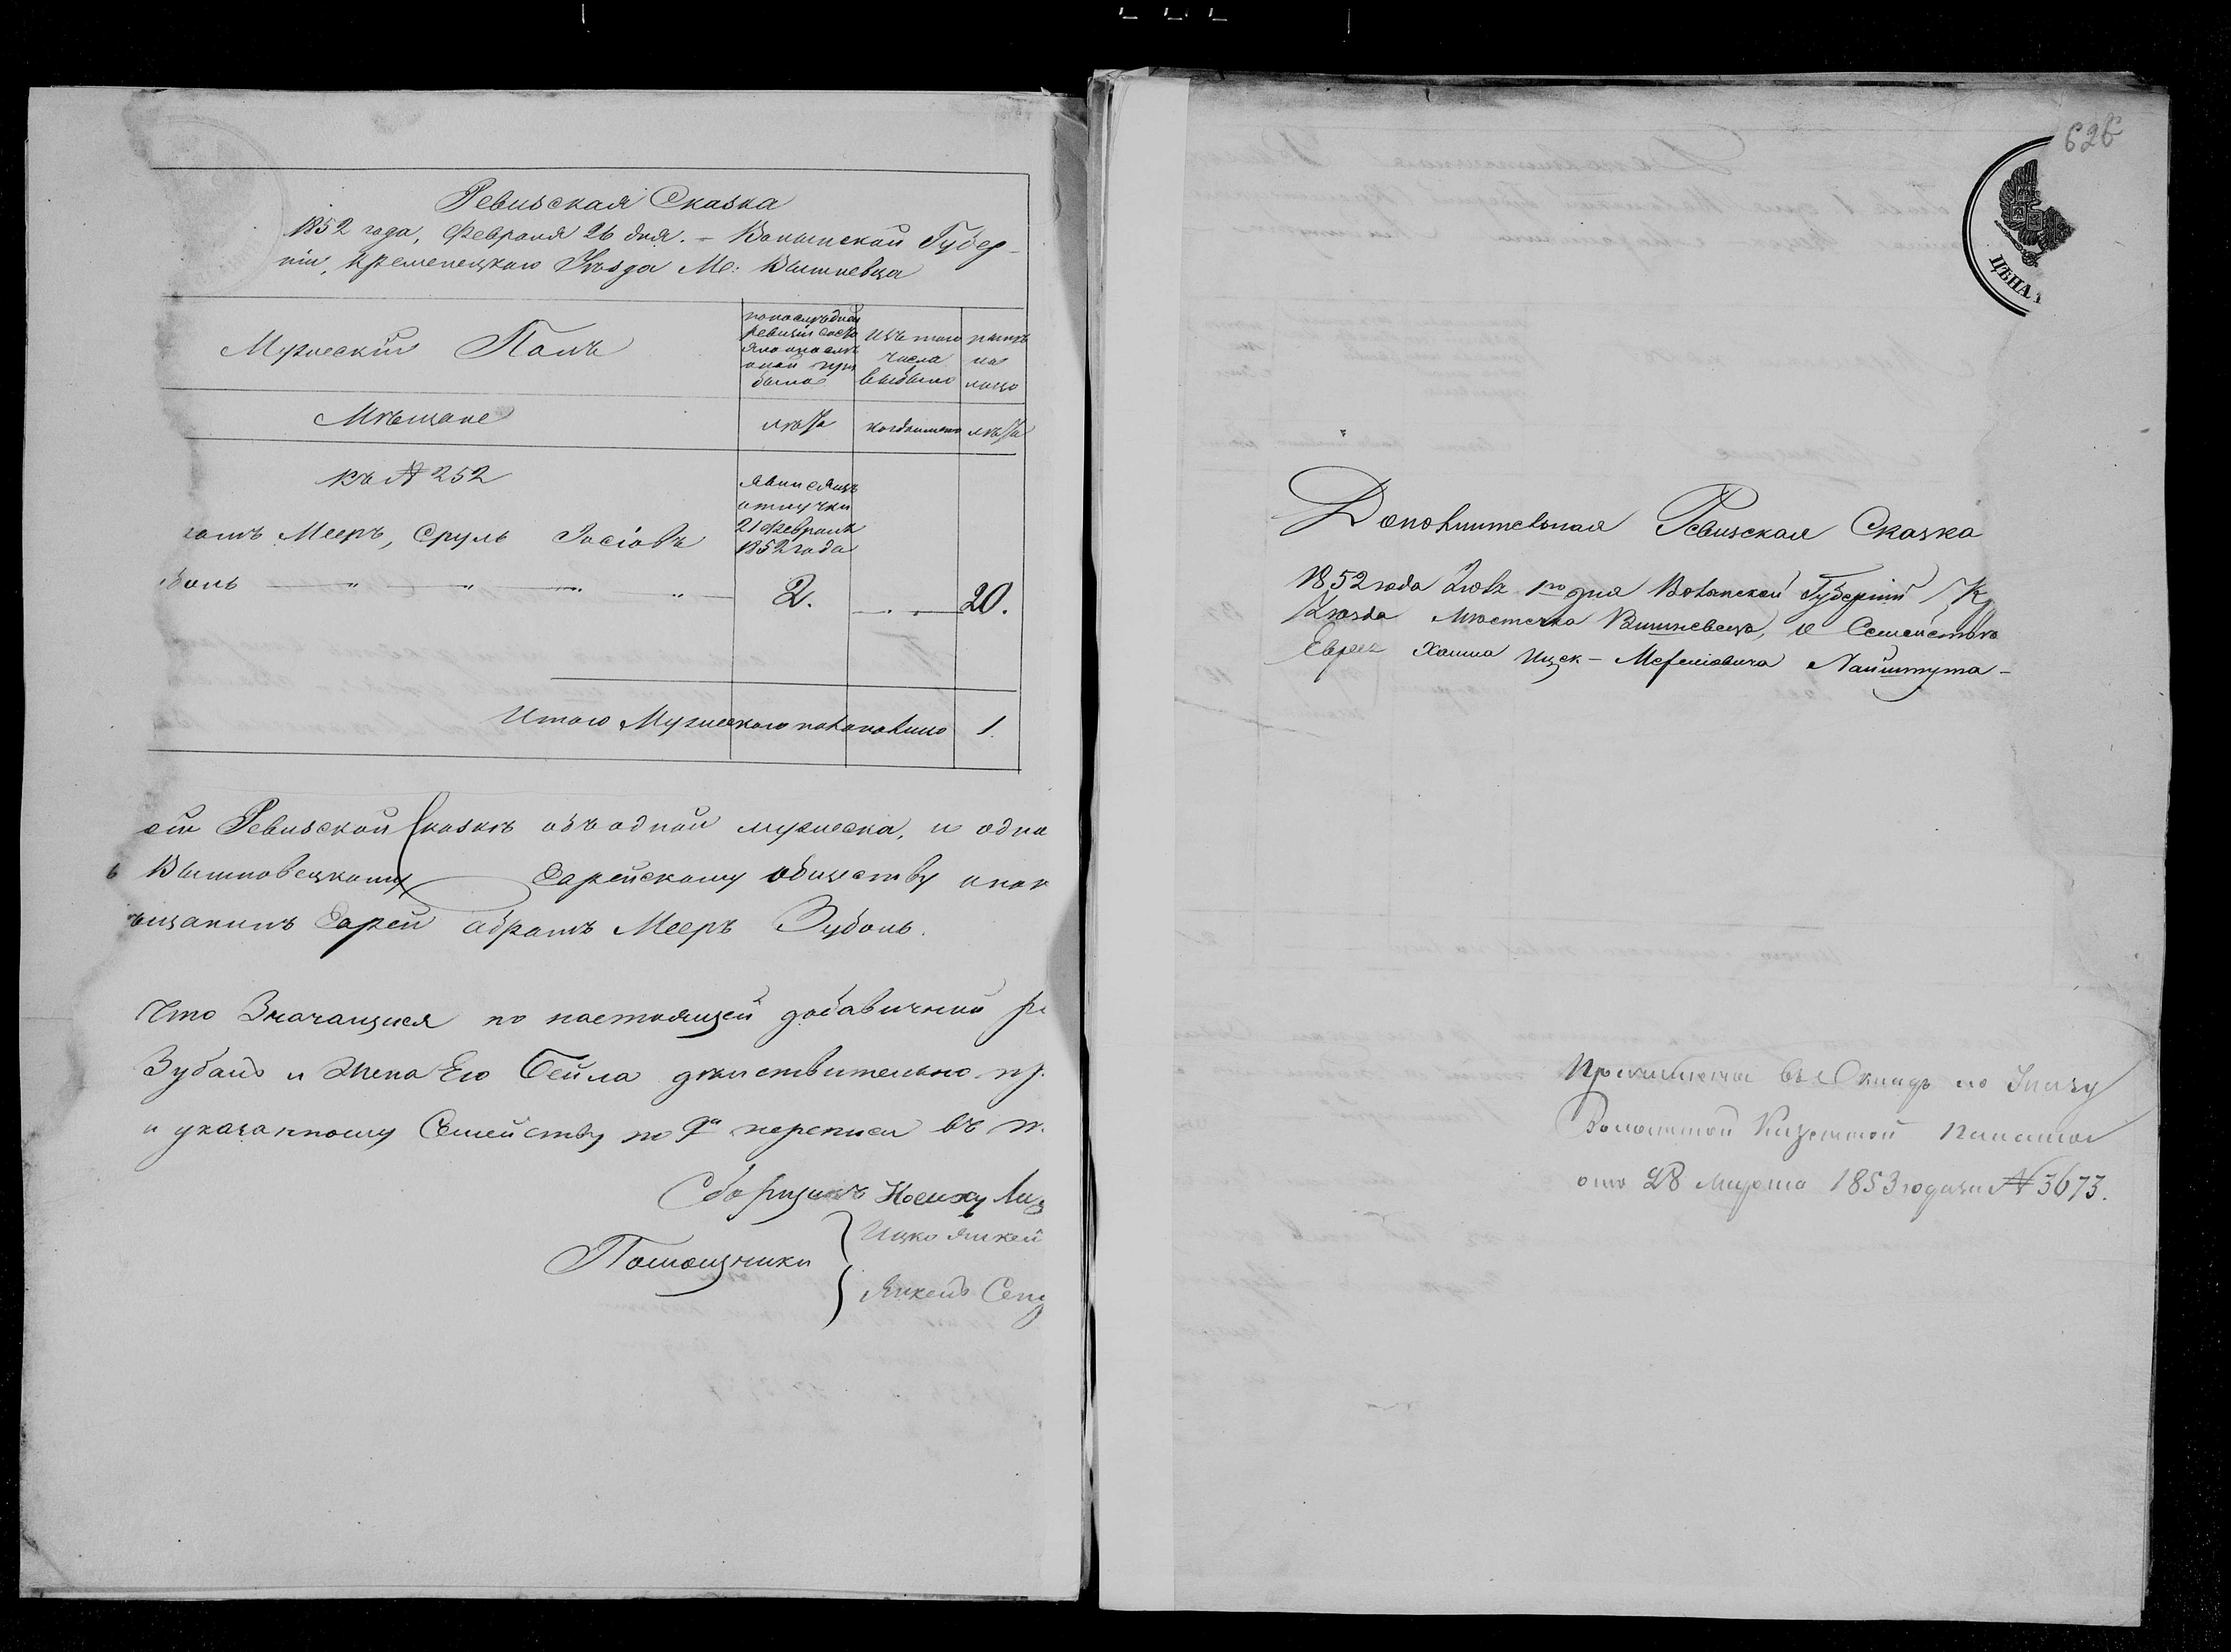 Ревизская Сказка
1852 года, Февраля 26 дня. – Волынской Губер-
нiи, Кременецкаго Уѣзда М: Вишневца
Мужескiй Полъ
по последней ревизiи состо яло и после оной при было
Изъ того числа выбыло
нынѣ на лицо
Мѣщане
лѣта
когда именно
лѣта
къ № 252
рамъ Мееръ, Сруль Iосiовъ
явился изъ отлучки 21 Февраля 1852 года
боль — " — " — " — " —
2.
20.
Итого Мужескаго пола на лицо 1.
сей Ревизской Сказкѣ объ одной мужеска, и одна
Вишновецкому Еврейскому обществу
ѣщанинъ Еврей Абрамъ Мееръ Зубаль.
Что Значащiеся по настоящей добавичной р
Зубаль и Жена Его Бейла дѣйствительно пр
и указанному Семейству по 9й переписи въ
Сборщикъ
Помощники
Ицко Янкель
Янкель Сен
626
ЦѢНА
Дополнительная Ревизская Сказка
1852 года Iюля 1го дня Волынской Губернiи К
Уѣзда Мѣстечка Вишневецъ, о Семействѣ
Еврея Хаима Ицек-
Причислены въ Окладъ по Указу
Волынской Казенной Палаты
отъ 28 Марта 1853 года за № 3673.